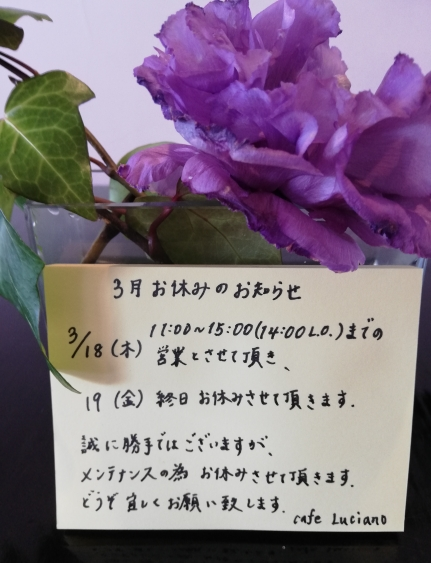 3月 お休みのお知らせ
3/18(木) 11:00~15:00(14:00 L.O.)までの
営業とさせて頂き、
19(金) 終日 お休みさせて頂きます.
誠に勝手ではございますが、
メンテナンスの為 お休みさせて頂きます.
どうぞ宜しくお願い致します.
cafe Luciano